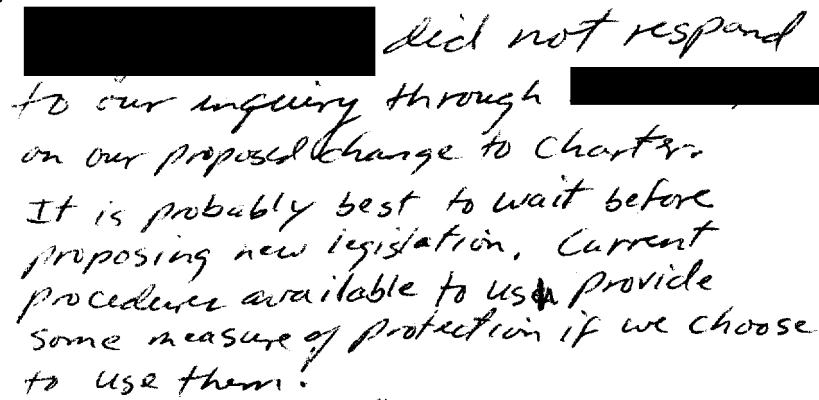 did not respond
to our inquiry through
on our proposed change to Charter.
It is probably best to wait before
proposing new legislation. Current
procedures available to us provide
some measure of protection if we choose
to use them.